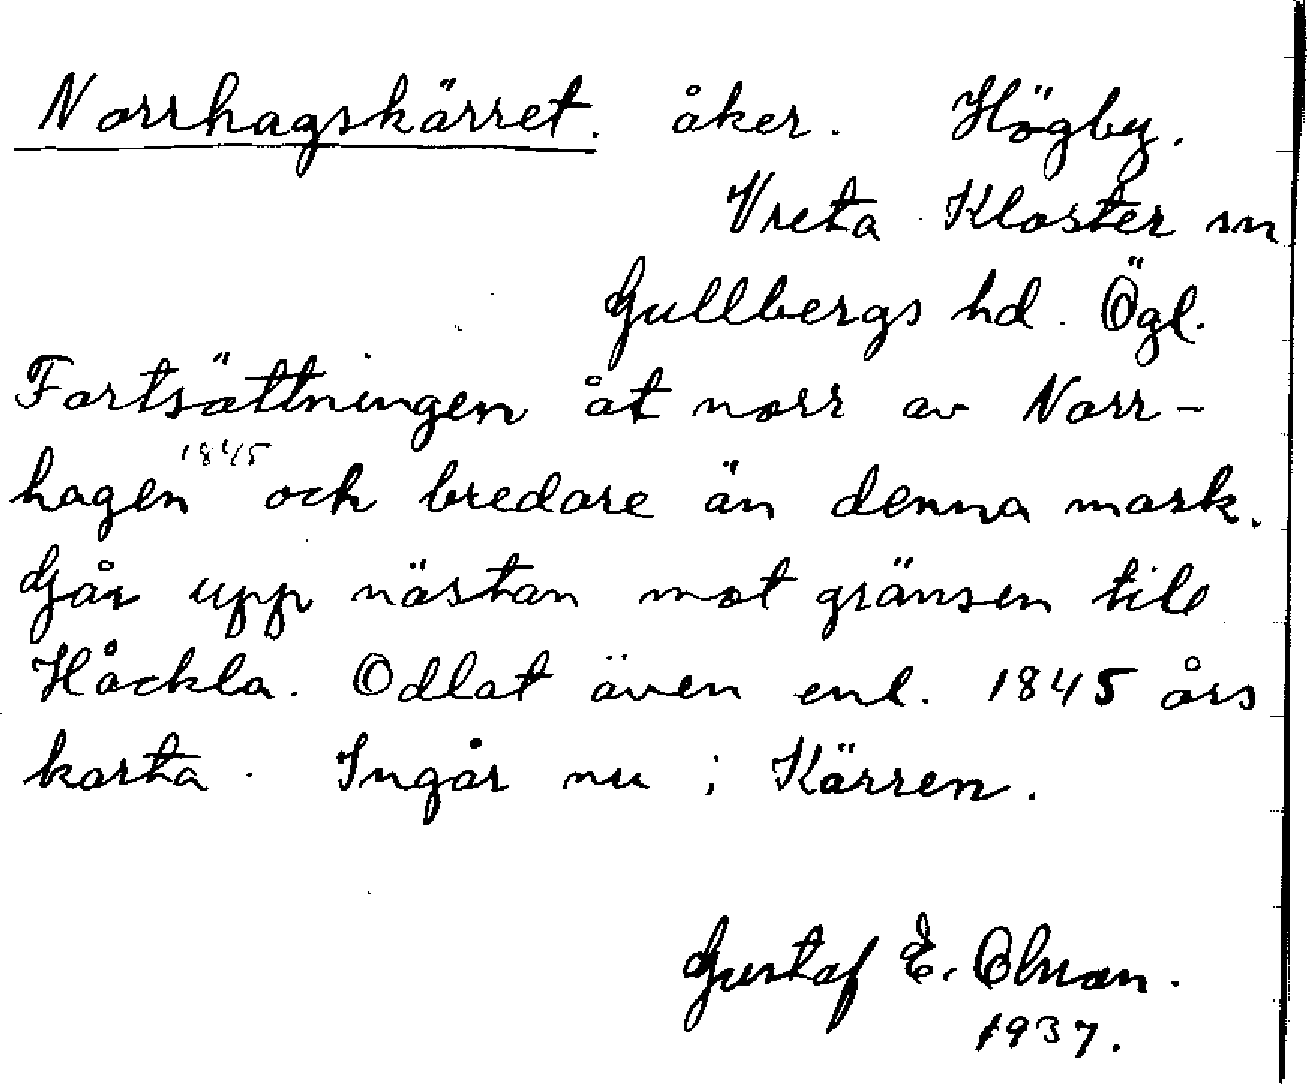 Norrhagskärret. åker. Högby.
Vreta Kloster sn
Gullbergs hd. Ögl.
Fortsättningen åt norr av Norr-
1845
hagen och bredare än denna mark.
Går upp nästan mot gränsen till
Håckla. Odlat även enl. 1845 års
karta. Ingår nu i Kärren.
Gustaf E. Olman.
1937.